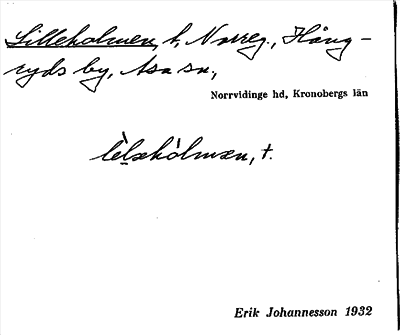 Lilleholmen, t, Norreg., Häng-
ryds by, Asa sn.,
Norrvidinge hd, Kronobergs län
lèlæhòlmæn, t.
Erik Johannesson 1932